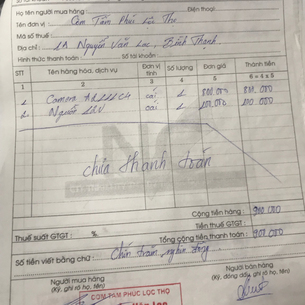 Họ tên người mua hàng: Điện thoại:
Tên đơn vị: Cơm Tấm Phúc Lộc Thọ
Mã số thuế:
Địa chỉ: 1A Nguyễn Văn Lạc, Bình Thạnh.
Hình thức thanh toán: Số tài khoản:
STT Tên hàng hóa, dịch vụ Đơn vị tính Số lượng Đơn giá Thành tiền
1 2 3 4 5 6 = 4 x 5
1 Camera cái 1 800.000 800.000
2 Nguồn 12V cái 1 100.000 100.000
chưa thanh toán
Cộng tiền hàng:
Thuế suất GTGT: % Tiền thuế GTGT:
Tổng cộng tiền thanh toán:
Số tiền viết bằng chữ: Chín trăm nghìn đồng
Người mua hàng Người bán hàng
(Ký, ghi rõ họ, tên) (Ký, đóng dấu, ghi rõ họ, tên)
COM TAM PHUC LOC THO